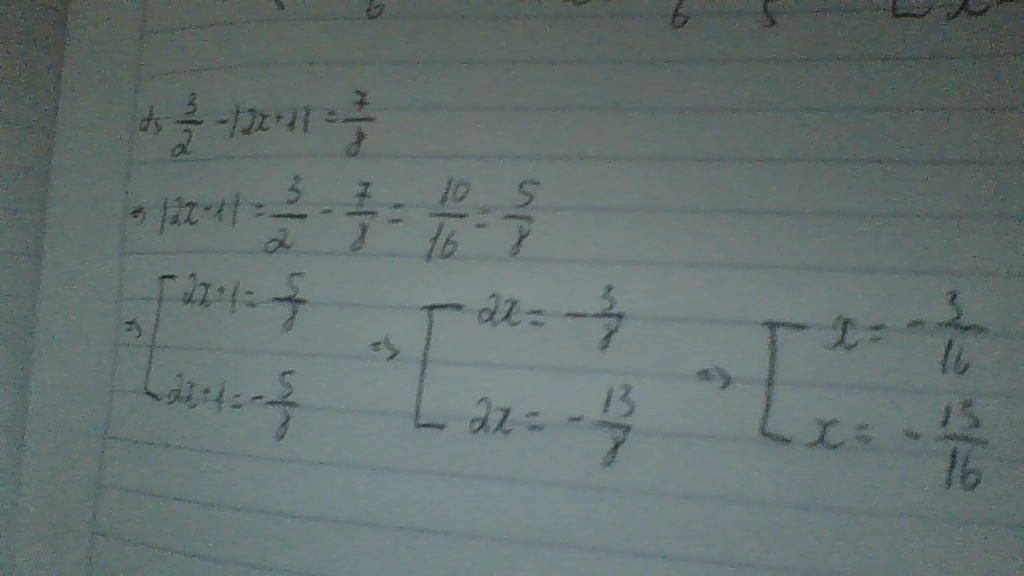 6 6 5
d, 3/2 - |2x+1| = 7/8
=> |2x+1| = 3/2 - 7/8 = 10/16 = 5/8
=> [ 2x+1 = 5/8 => [ 2x = -3/8 => [ x = -3/16
2x+1 = -5/8 2x = -13/8 x = -13/16